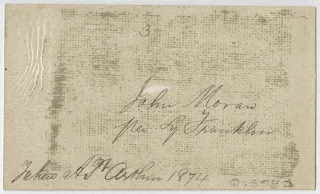 3
John Moran
per Ly Franklin
Taken At Asylum 1874